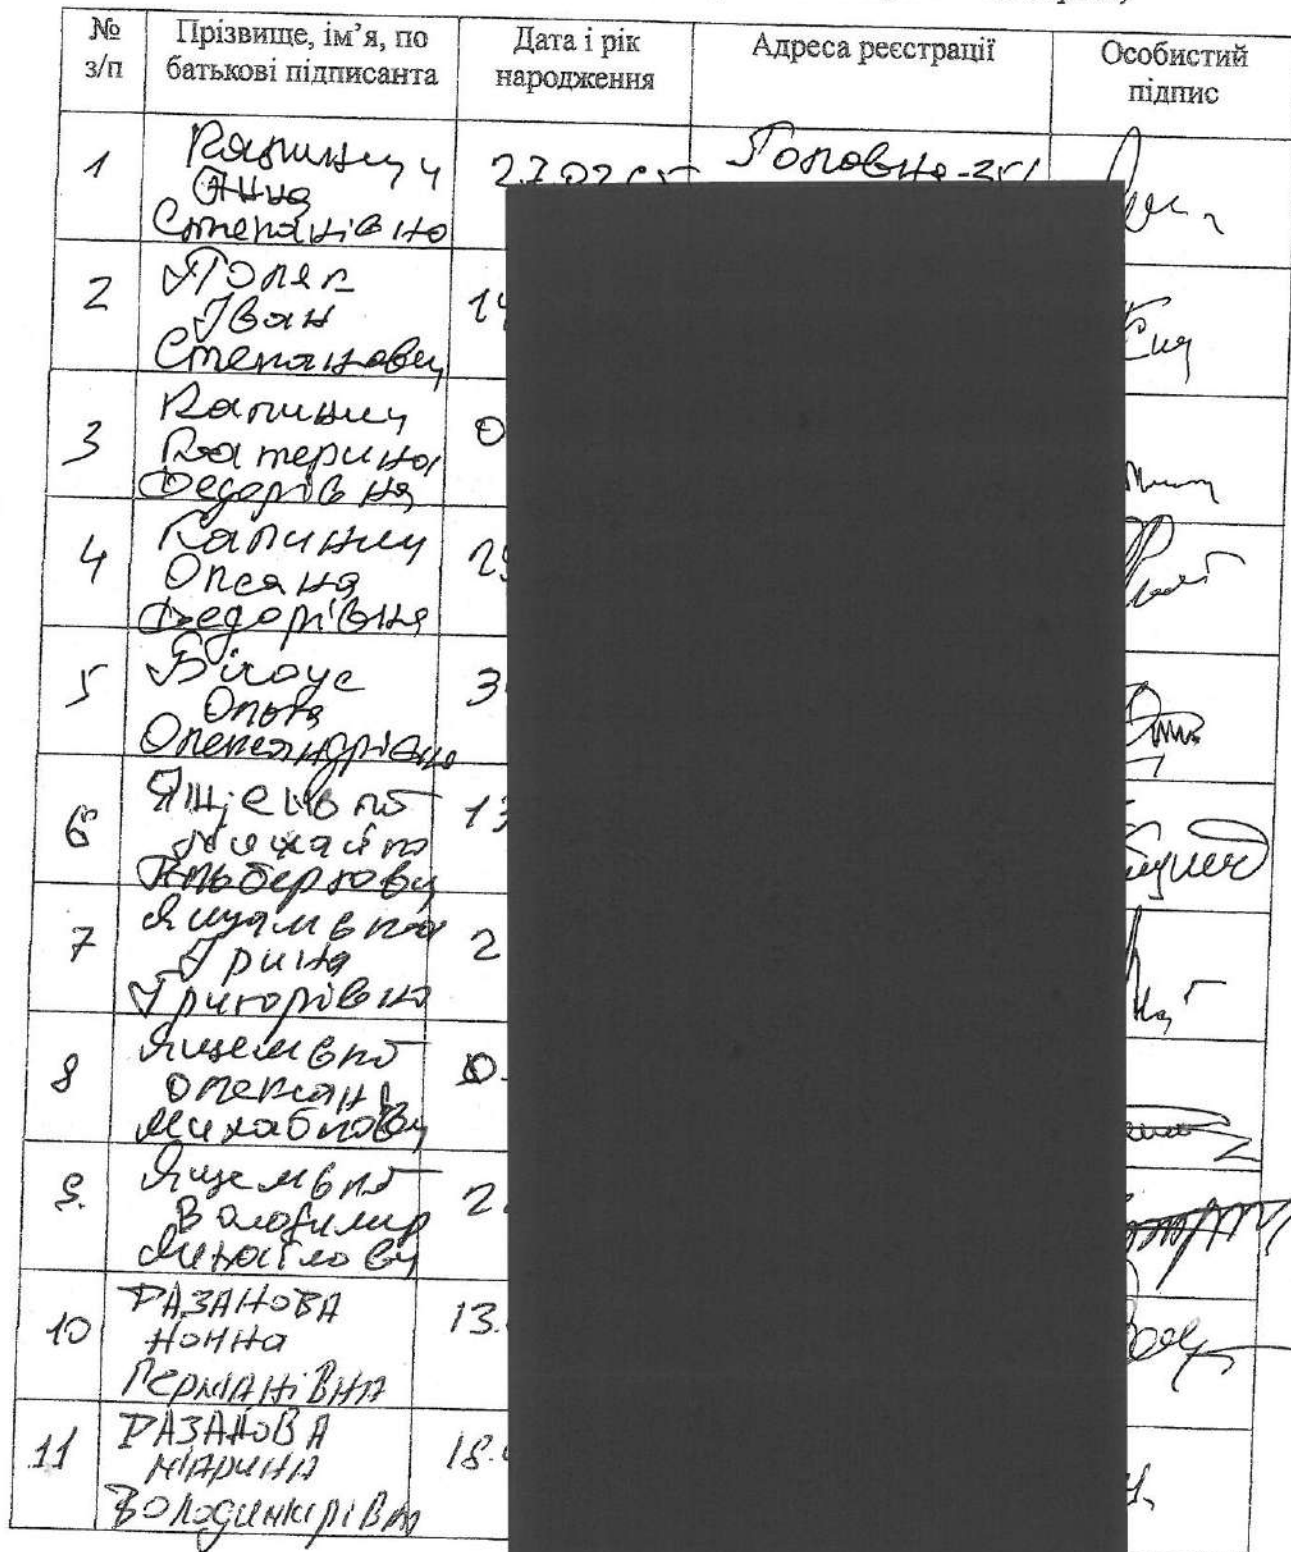 № з/п
Прізвище, ім’я, по
батькові підписанта
Дата і рік
народження
Адреса реєстрації
Особистий
підпис
1
Калинич
Анна
Степанівна
27.02.65
Головна-
2
Поляк
Іван
Степанович
14
3
Калинич
Катерина
Федорівна
0
4
Калинич
Оксана
Федорівна
29
5
Білоус
Ольга
Олександрівна
3
6
Михайло
Альбертович
13
7
Ірина
Григорівна
2
8
Михайлович
0.
9.
Володимир
Михайлович
2
10
РАЗАНОВА
Нонна
Германівна
13.
11
РАЗАНОВА
МАРИНА
Володимирівна
18.